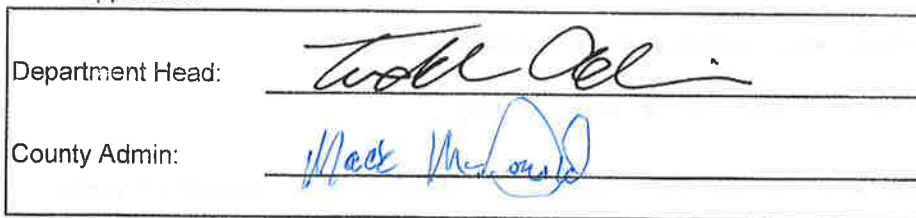 Department Head: Todd
County Admin: Mack McDonald